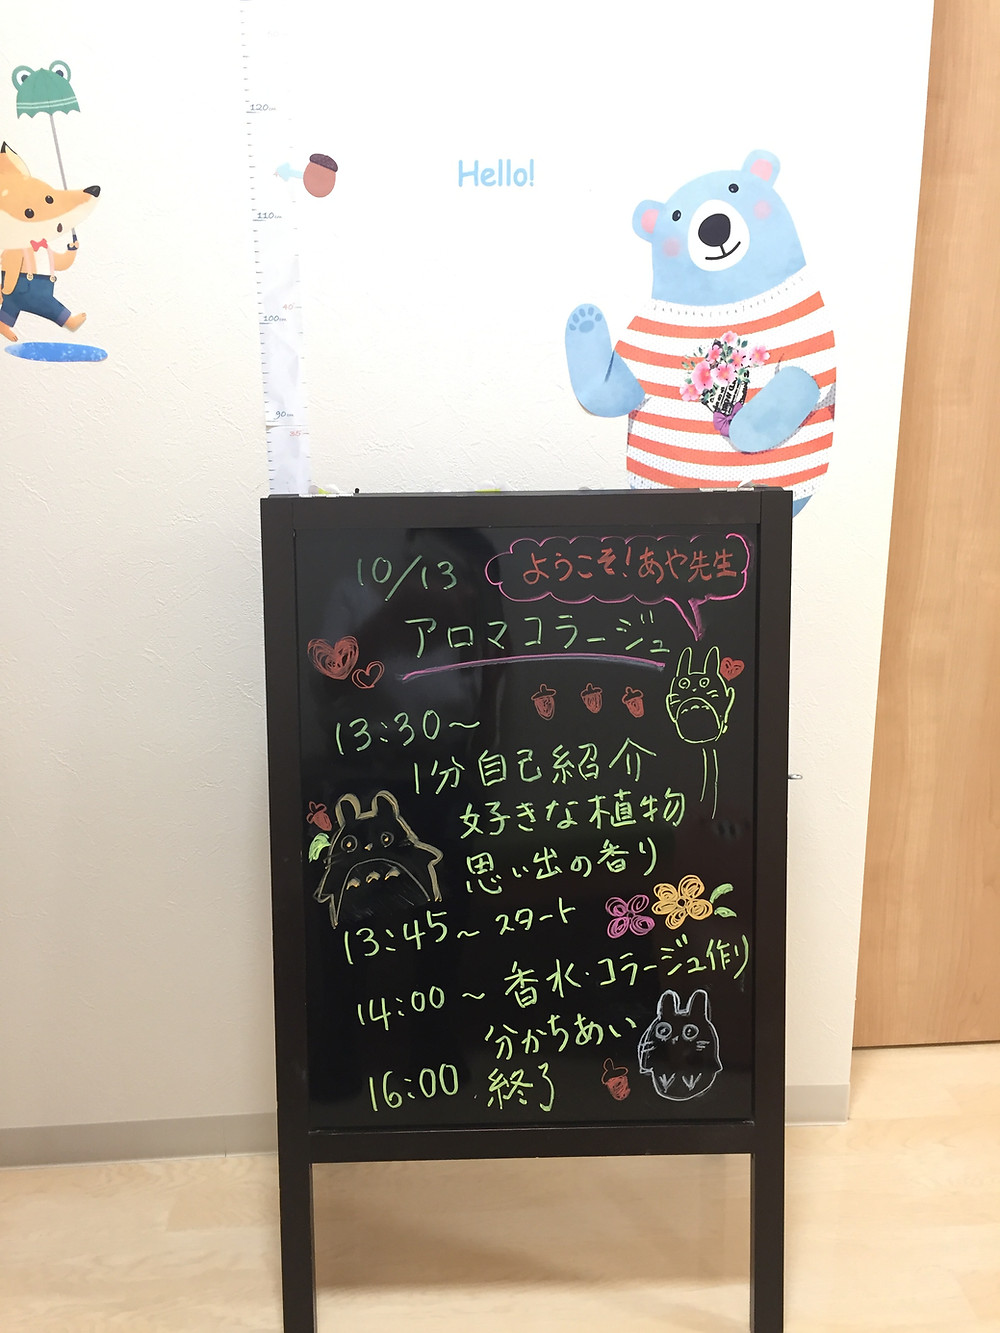 120cm
110cm
40
100cm
90cm
35
Hello!
10/13
ようこそ！あや先生
アロマコラージュ
13:30～
1分自己紹介
好きな植物
思い出の香り
13:45～スタート
14:00～香水・コラージュ作り
分かちあい
16:00 終了